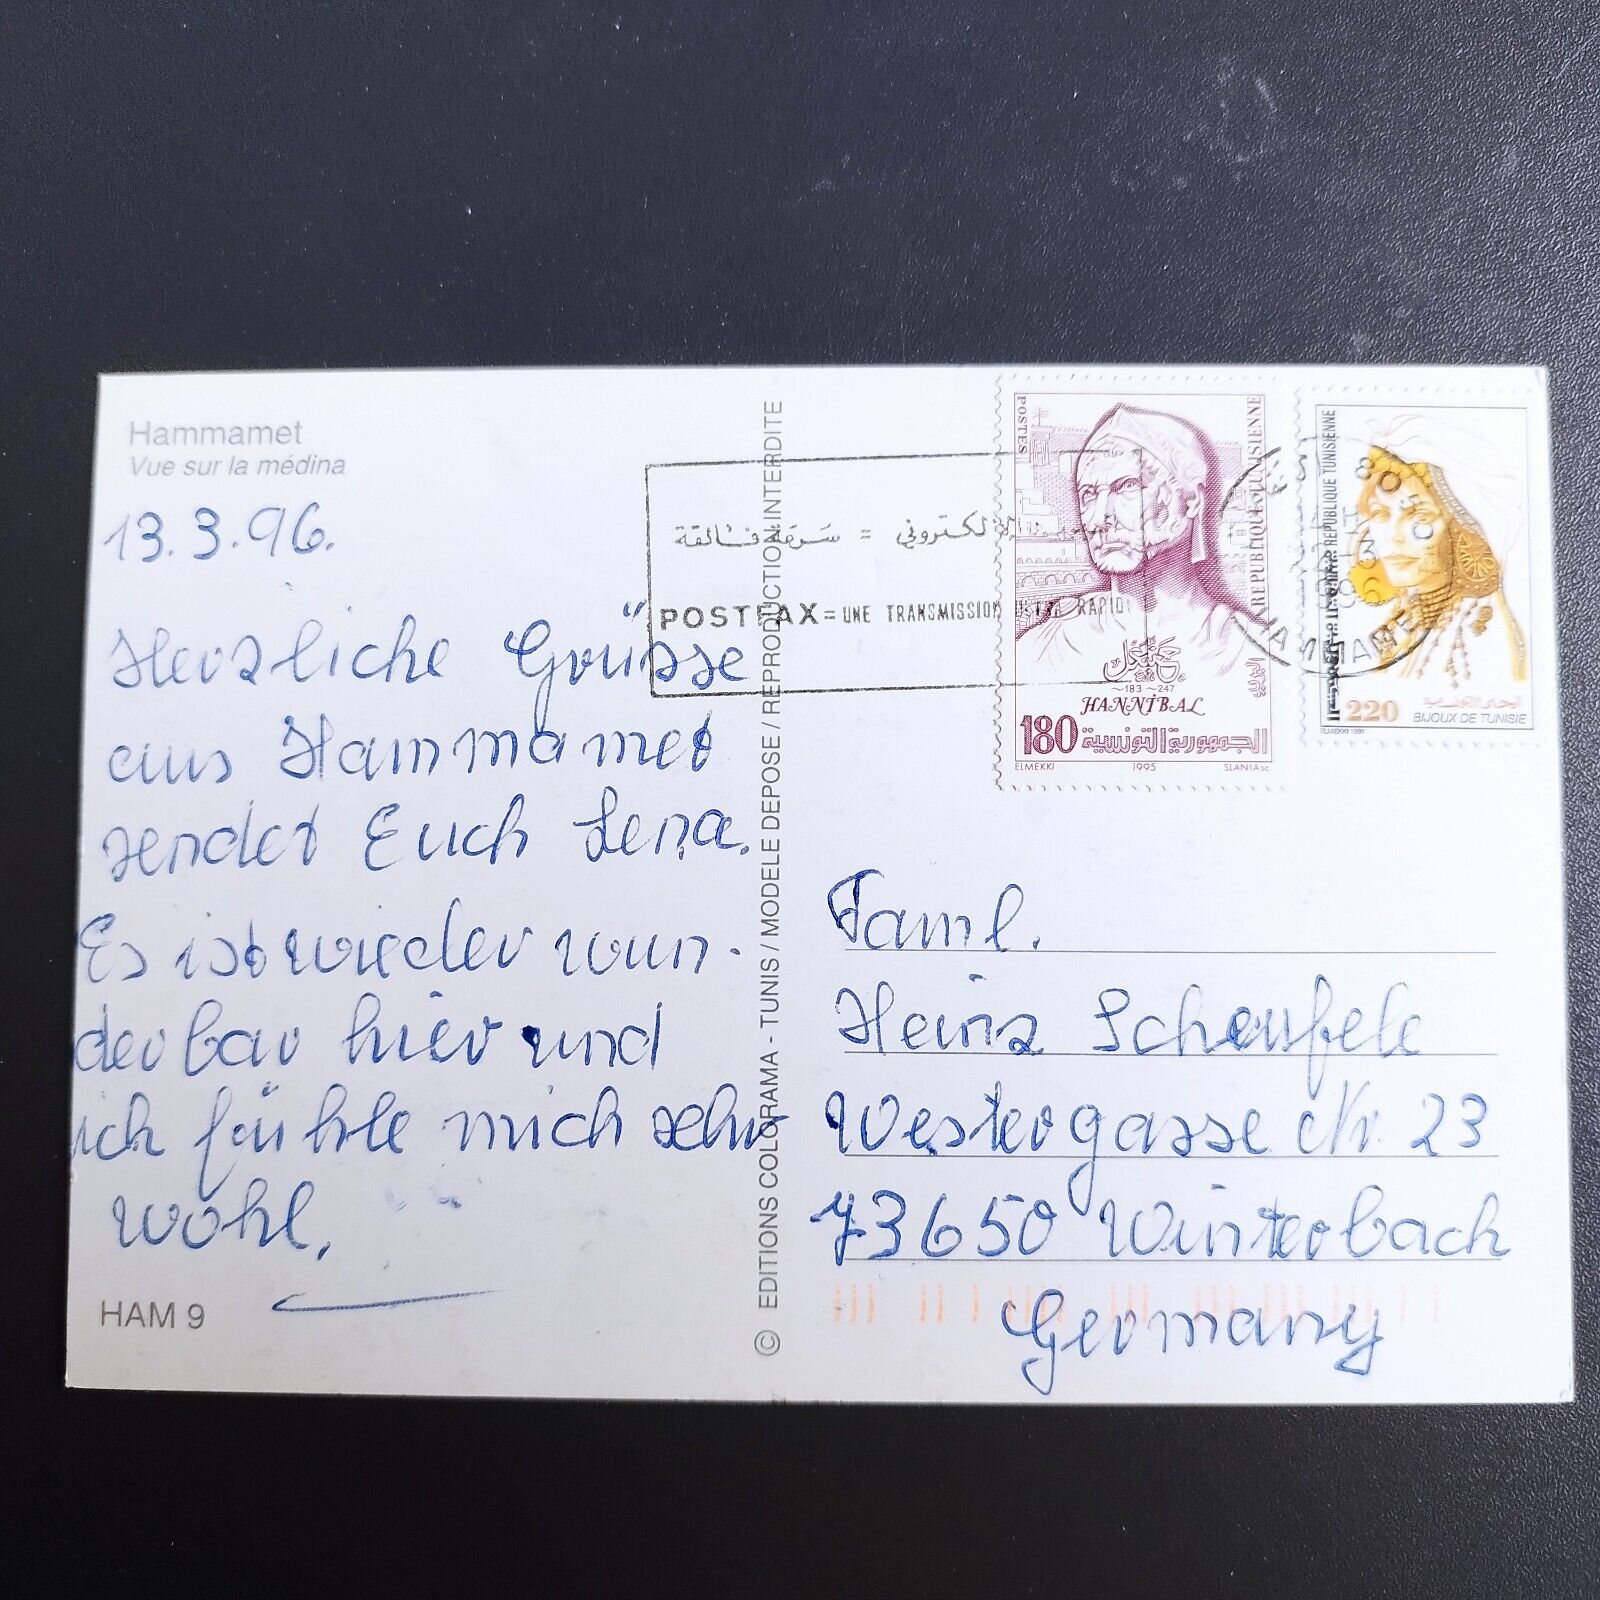 Hammamet
Vue sur la médina
13.3.96.
Herzliche Grüsse
aus Hammamet
sendet Euch Lena.
Es ist wieder wun-
derbar hier und
ich fühle mich sehr
wohl.
HAM 9
© EDITIONS COLORAMA - TUNIS / MODELE DEPOSE / REPRODUCTION INTERDITE
الإلكتروني = سرعة فائقة
POSTFAX = UNE TRANSMISSION ULTRA RAPIDE
POSTES
REPUBLIQUE TUNISIENNE
البريد
حنبعل
~183 ~247
HANNIBAL
180 الجمهورية التونسية
ELMEKKI 1995 SLANIA sc
REPUBLIQUE TUNISIENNE
220
الحلي التونسية
BIJOUX DE TUNISIE
ELMEKKI 1991
HAMMAMET
Faml.
Heinz Scheufele
Westergasse Nr. 23
73650 Winterbach
Germany